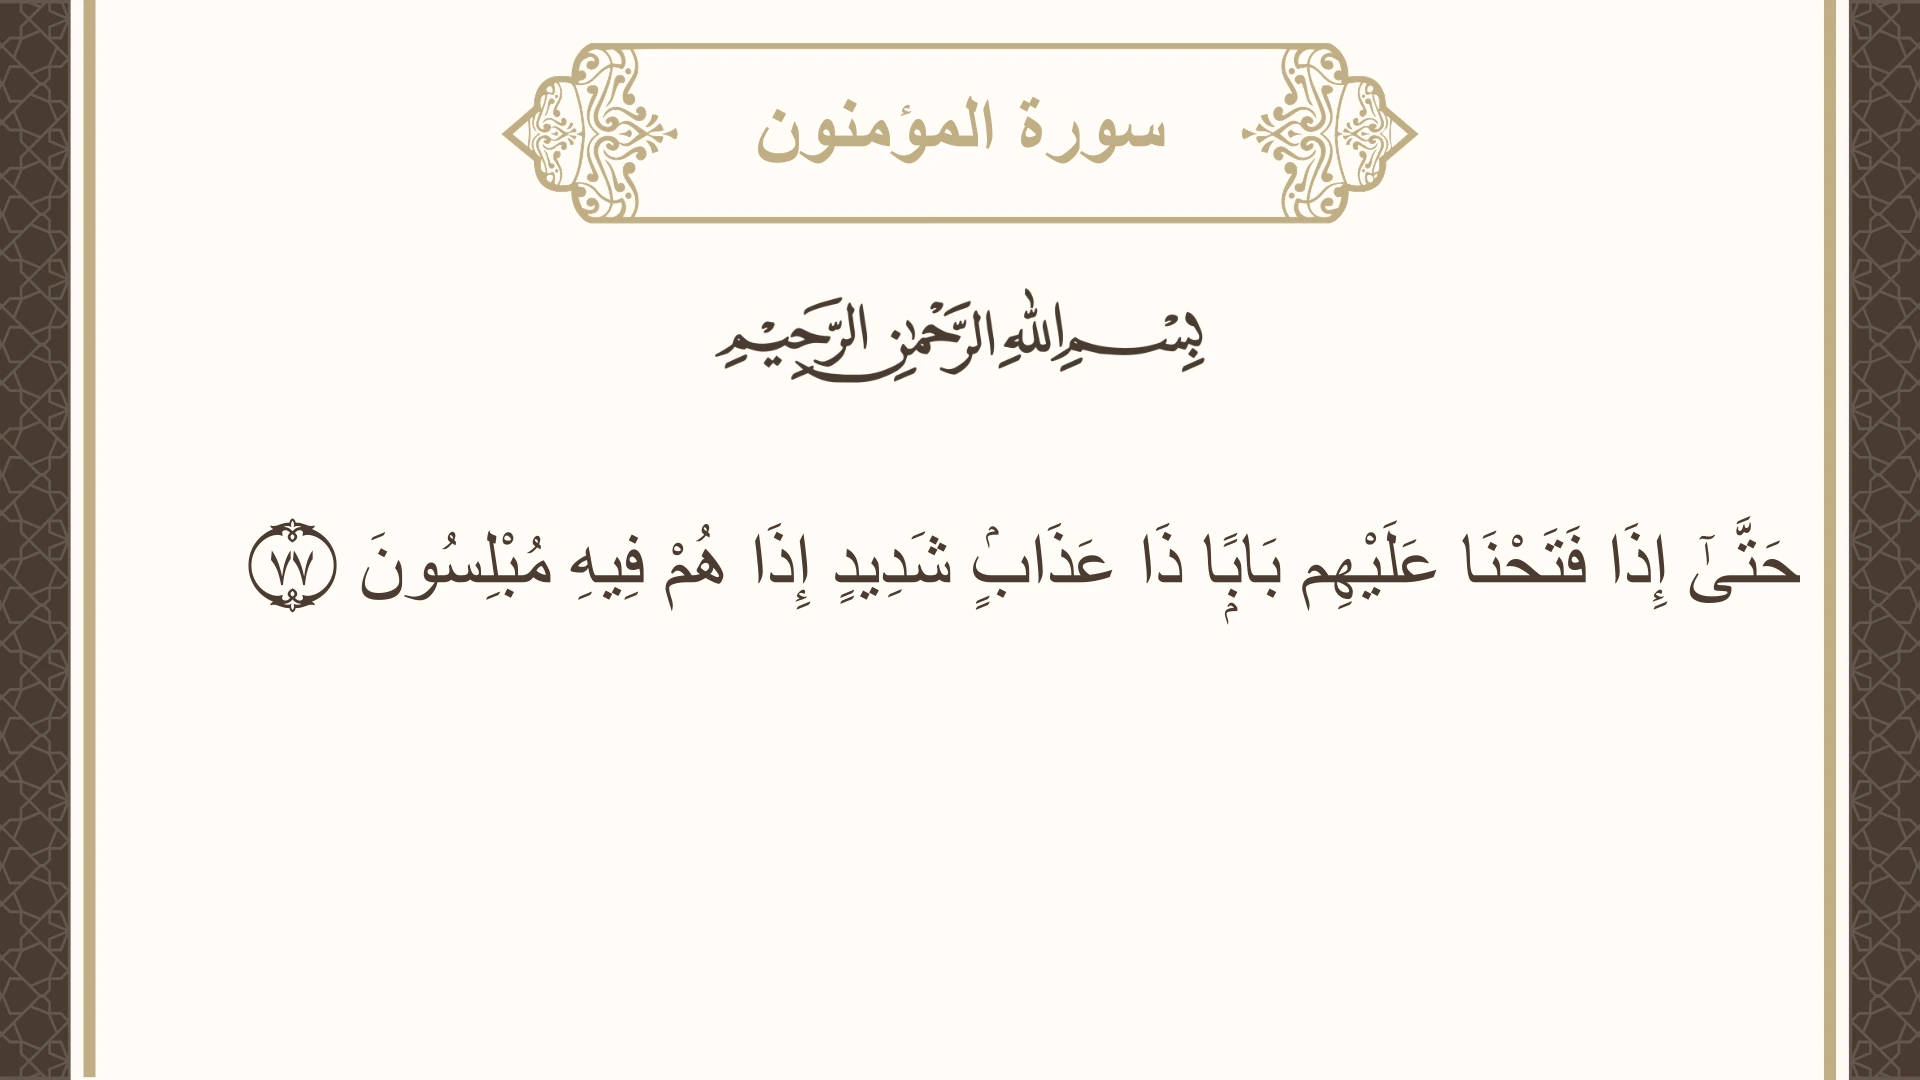 سورة المؤمنون
بِسْمِ اللهِ الرَّحْمٰنِ الرَّحِيْمِ
حَتَّىٰٓ إِذَا فَتَحْنَا عَلَيْهِم بَابًۭا ذَا عَذَابٍۢ شَدِيدٍ إِذَا هُمْ فِيهِ مُبْلِسُونَ ٧٧